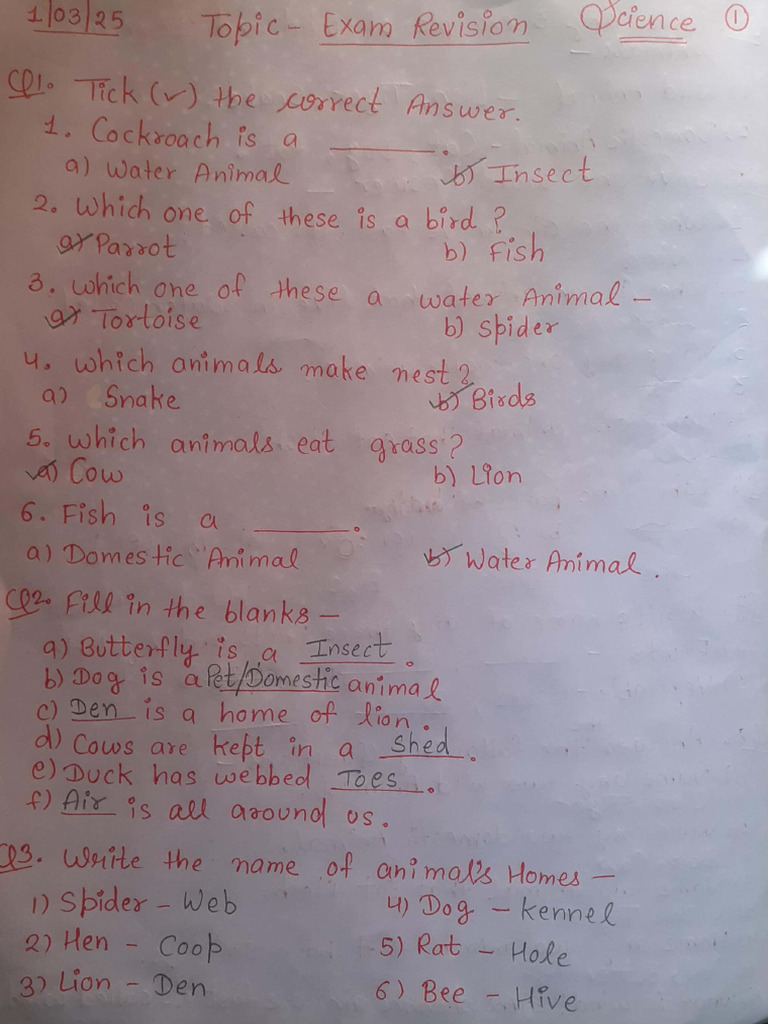 1/03/25 Topic - Exam Revision Science ①
Q1. Tick (✓) the correct Answer.
1. Cockroach is a ________.
a) Water Animal b) Insect
2. Which one of these is a bird ?
a) Parrot b) Fish
3. Which one of these a water Animal -
a) Tortoise b) Spider
4. Which animals make nest ?
a) Snake b) Birds
5. Which animals eat grass ?
a) Cow b) Lion
6. Fish is a ________.
a) Domestic Animal b) Water Animal.
Q2. Fill in the blanks -
a) Butterfly is a Insect.
b) Dog is a Pet/Domestic animal
c) Den is a home of lion.
d) Cows are kept in a Shed.
e) Duck has webbed Toes.
f) Air is all around us.
Q3. Write the name of animal's Homes -
1) Spider - Web 4) Dog - Kennel
2) Hen - Coop 5) Rat - Hole
3) Lion - Den 6) Bee - Hive